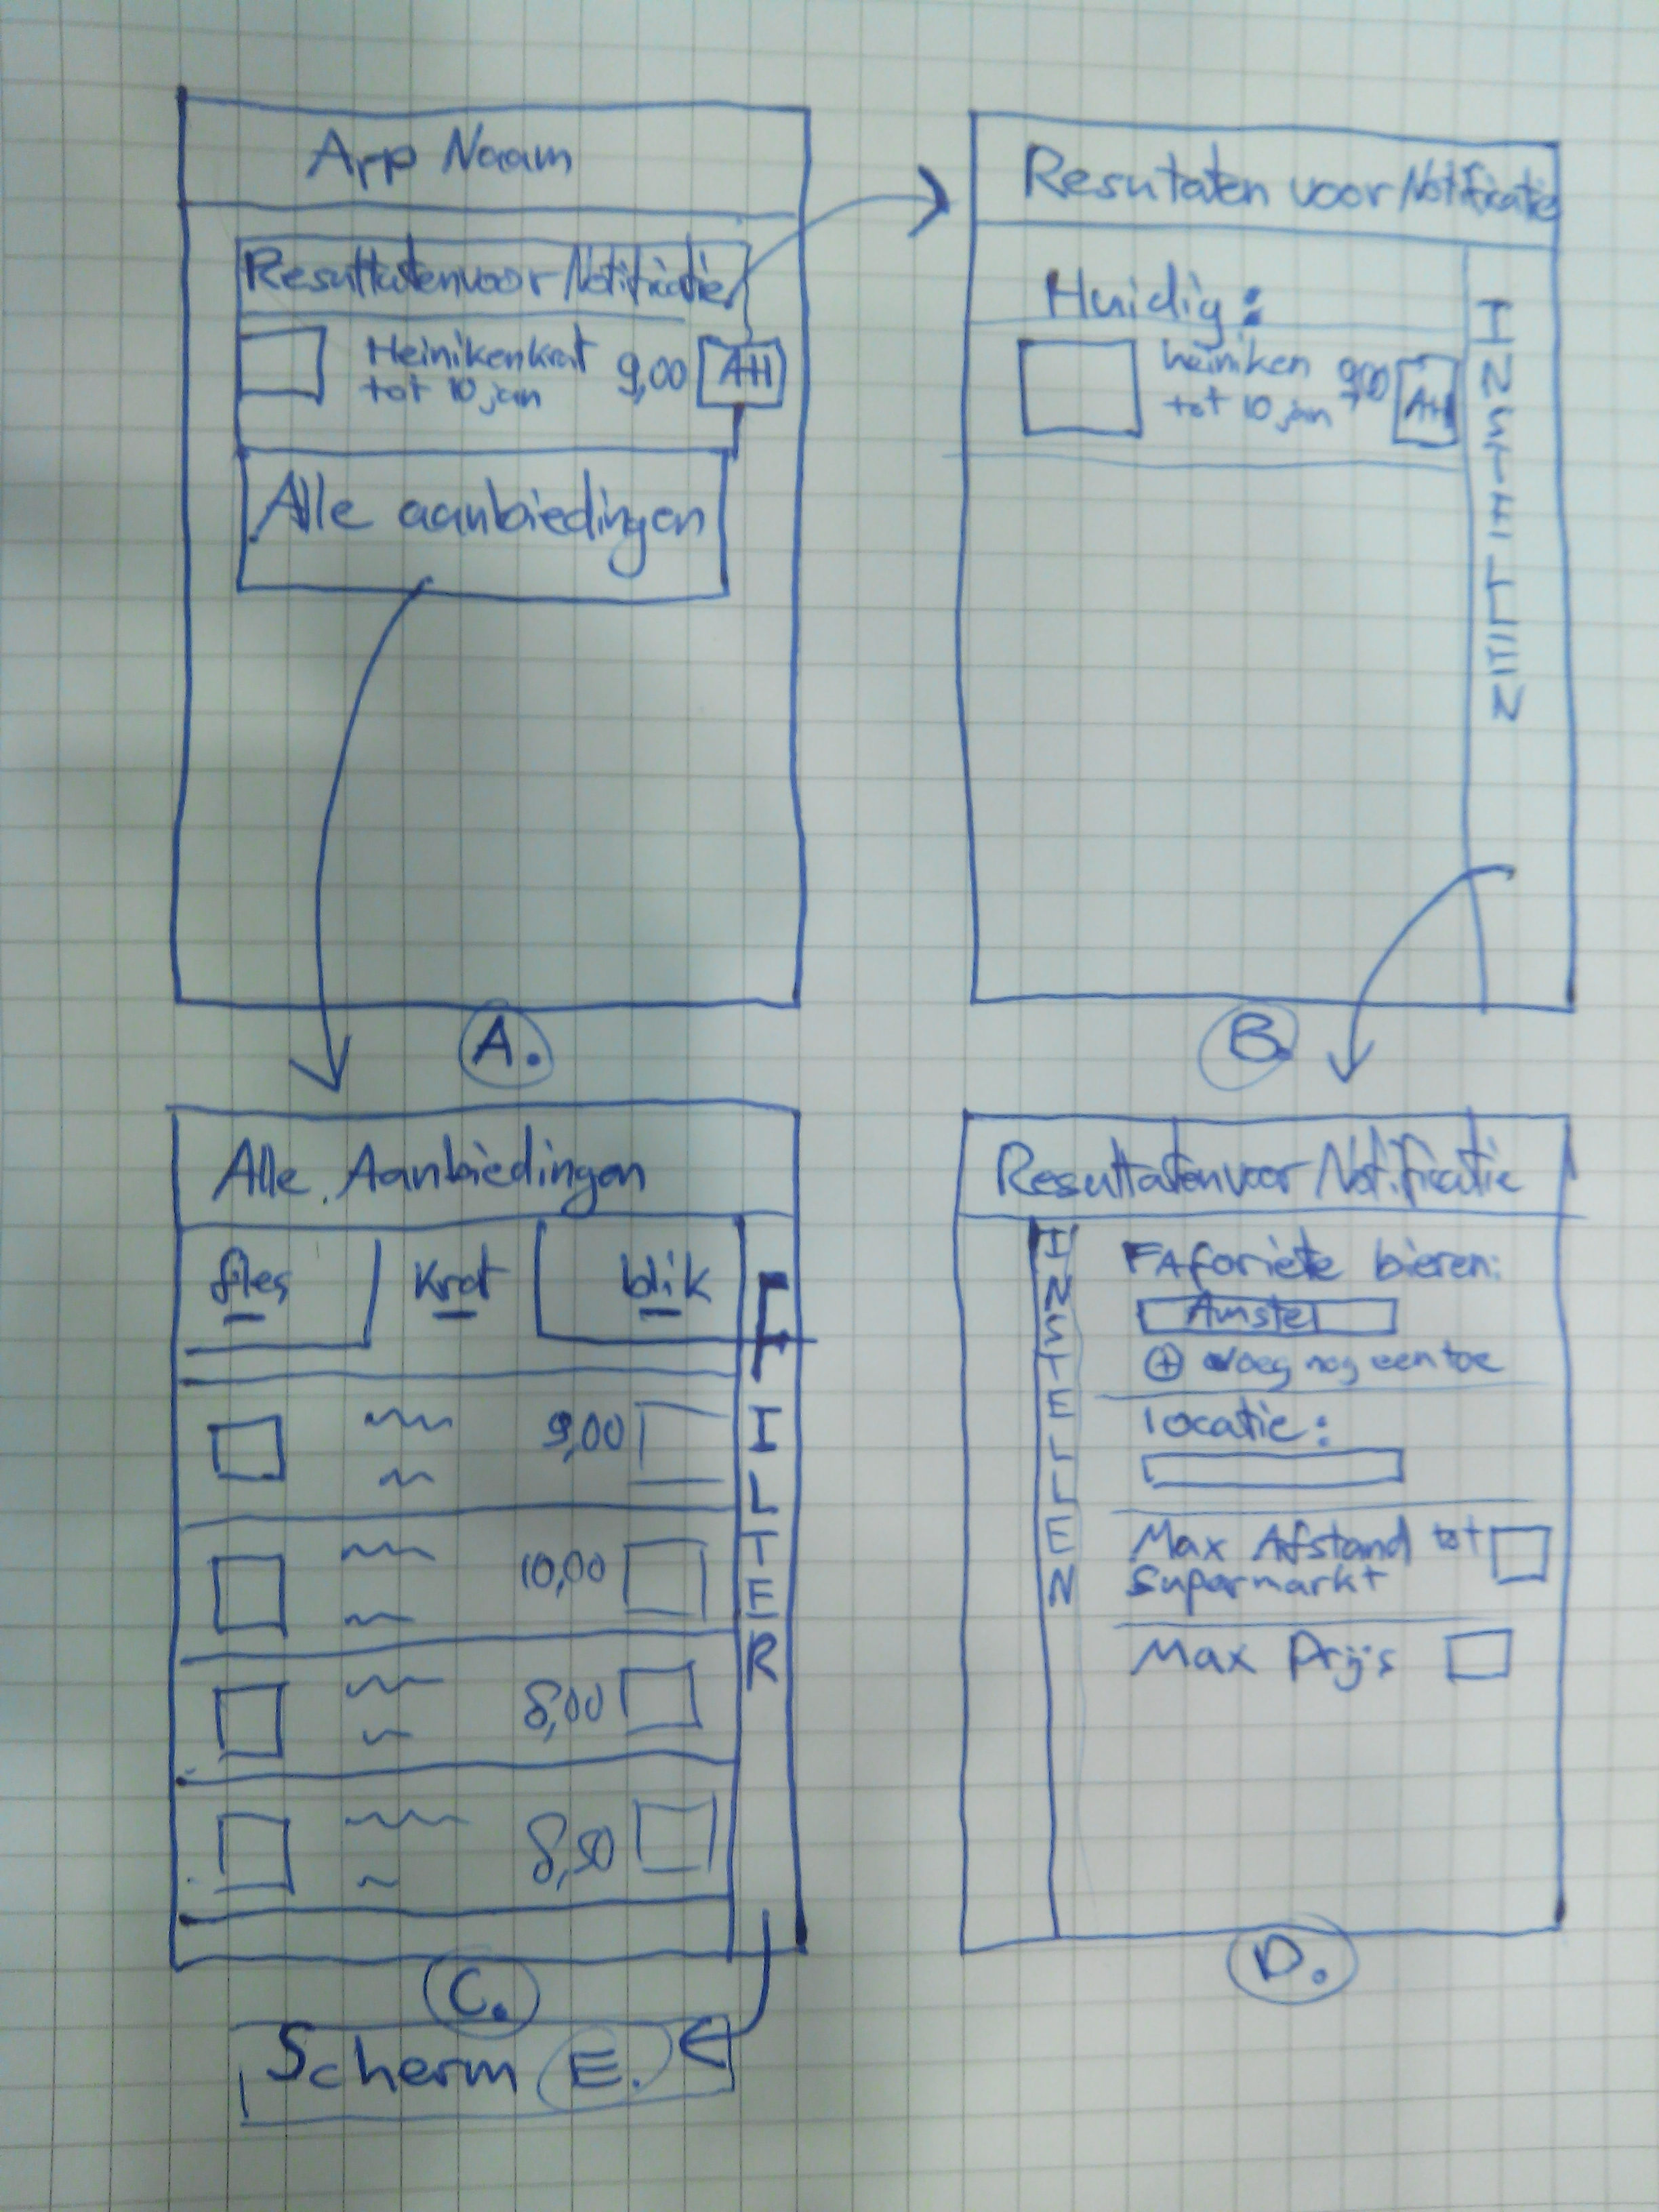 App Naam
Resultatenvoor Notificatie
Heinikenkrat
tot 10 jan
9,00
AH
Alle aanbiedingen
A.
Resutaten voor Notificatie
Huidig:
heiniken
tot 10 jan
9,00
AH
INSTELLEN
B.
Alle Aanbiedingen
fles
Krat
blik
FILTER
9,00
10,00
8,00
8,50
C.
Scherm E.
Resultatenvoor Notificatie
INSTELLEN
FAforiete bieren:
Amstel
+ voeg nog een toe
locatie:
Max Afstand tot
Supermarkt
Max Prijs
D.